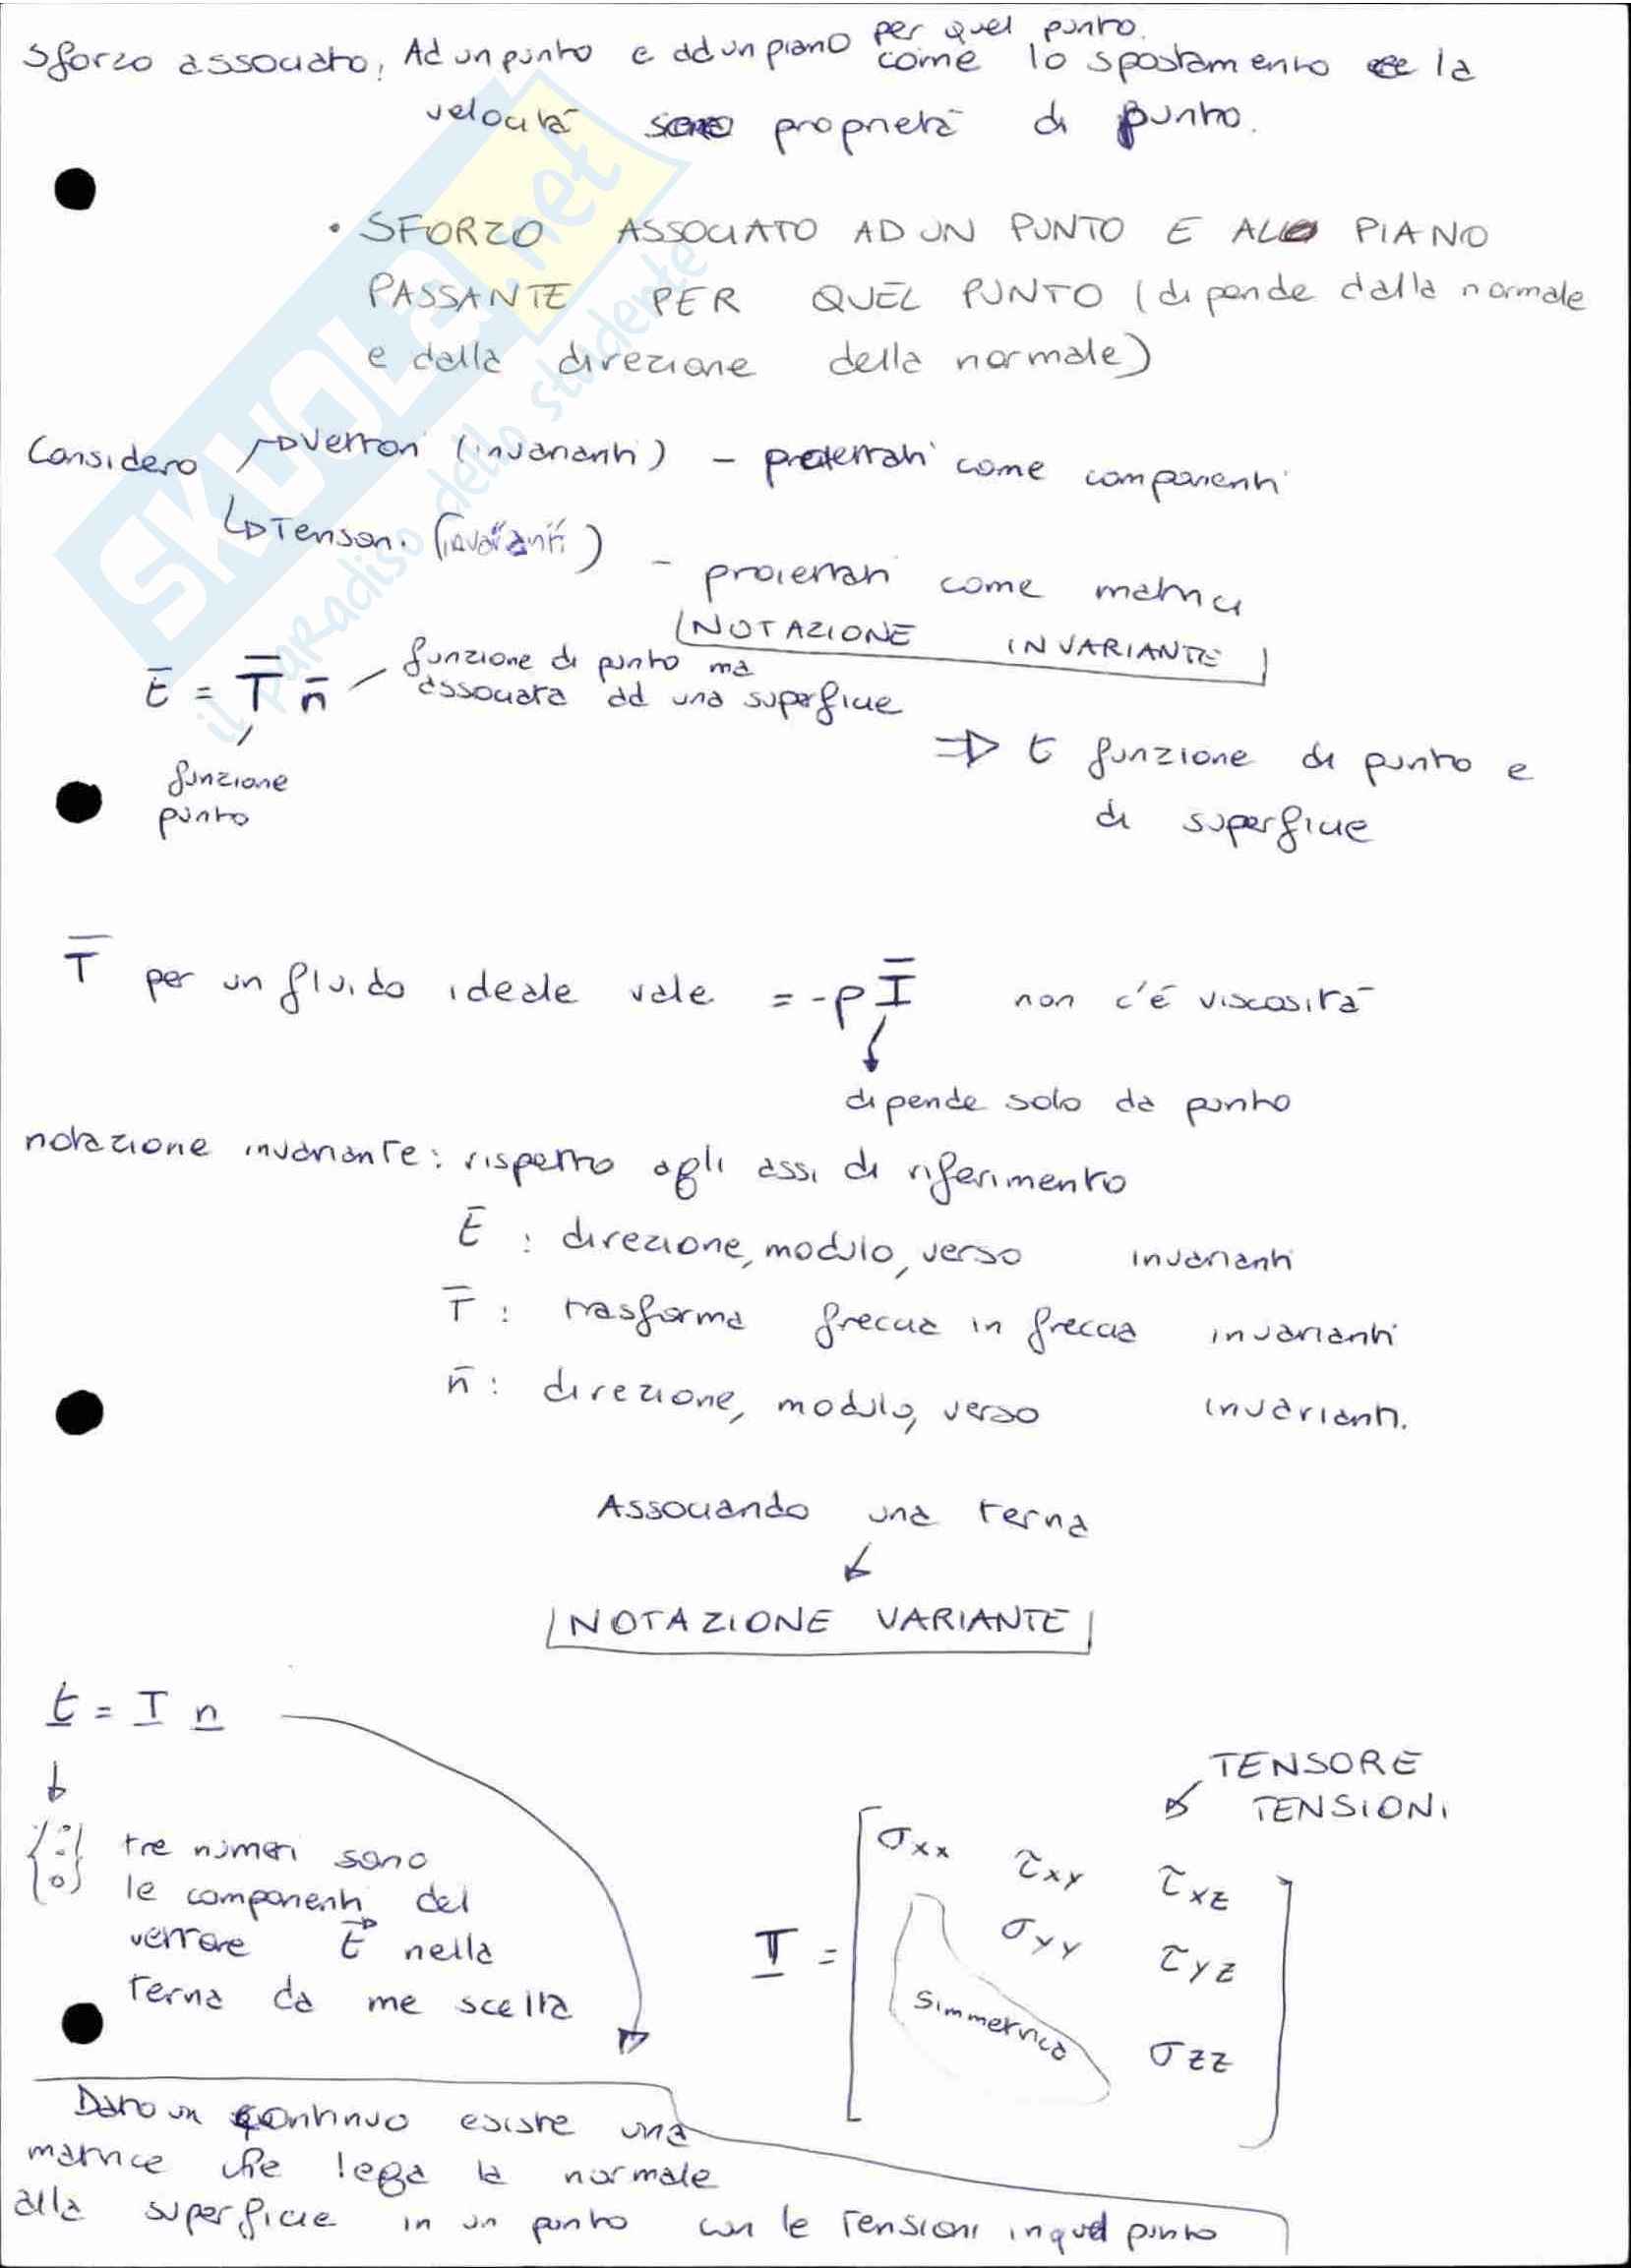 per quel punto.
Sforzo associato, Ad un punto e ad un piano come lo spostamento e la
velocità sono proprietà di punto.
• SFORZO ASSOCIATO AD UN PUNTO E AL PIANO
PASSANTE PER QUEL PUNTO (dipende dalla normale
e dalla direzione della normale)
Considero → Vettori (invarianti) - proiettati come componenti
↳ Tensori (invarianti) - proiettati come matrici
NOTAZIONE INVARIANTE
t̄ = T̿ n̄ — funzione di punto ma
associata ad una superficie
funzione
punto
⇒ t funzione di punto e
di superficie
T̿ per un fluido ideale vale = -p I̿ non c'è viscosità
dipende solo da punto
notazione invariante: rispetto agli assi di riferimento
t̄ : direzione, modulo, verso invarianti
T̿ : trasforma freccia in freccia invarianti
n̄ : direzione, modulo, verso invarianti.
Associando una terna
↓
NOTAZIONE VARIANTE
t = T n
tre numeri sono
le componenti del
vettore t⃗ nella
terna da me scelta
TENSORE
TENSIONI
T = [ σxx τxy τxz
σyy τyz
Simmetrica
σzz ]
Dato un continuo esiste una
matrice che lega la normale
alla superficie in un punto con le tensioni in quel punto
SKUOLA.net
il paradiso dello studente